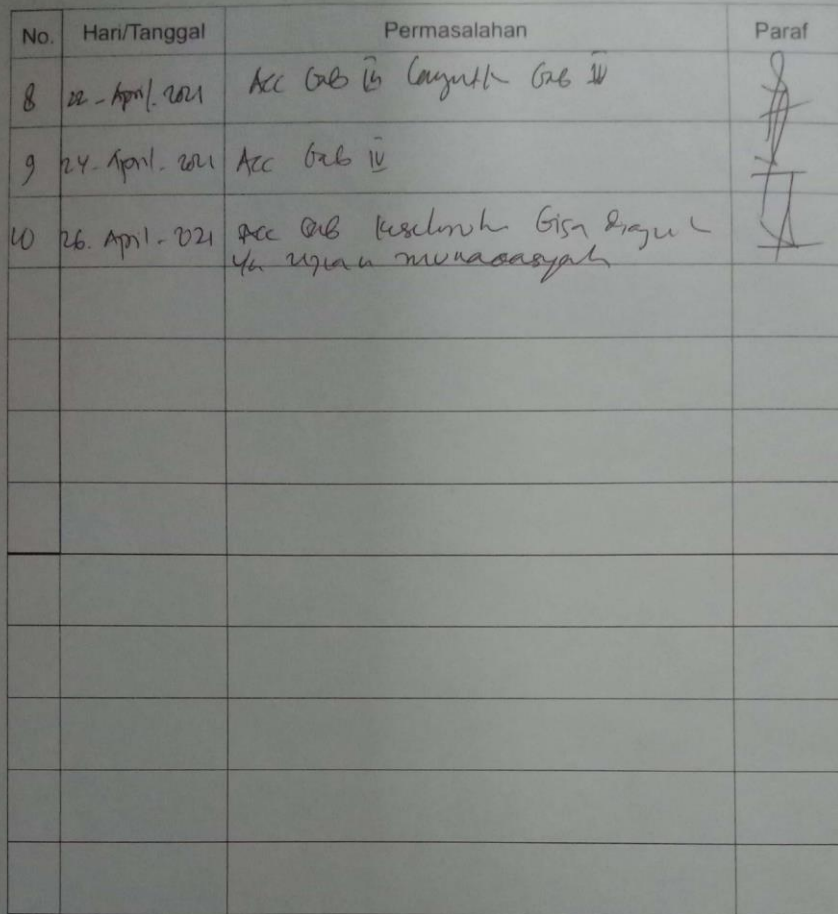 No. Hari/Tanggal Permasalahan Paraf
8 22 - April. 2021 Acc Bab III Lanjutk Bab IV
9 24 - April - 2021 Acc Bab IV
10 26. April - 2021 Acc Bab keseluruh Bisa
munaqasyah